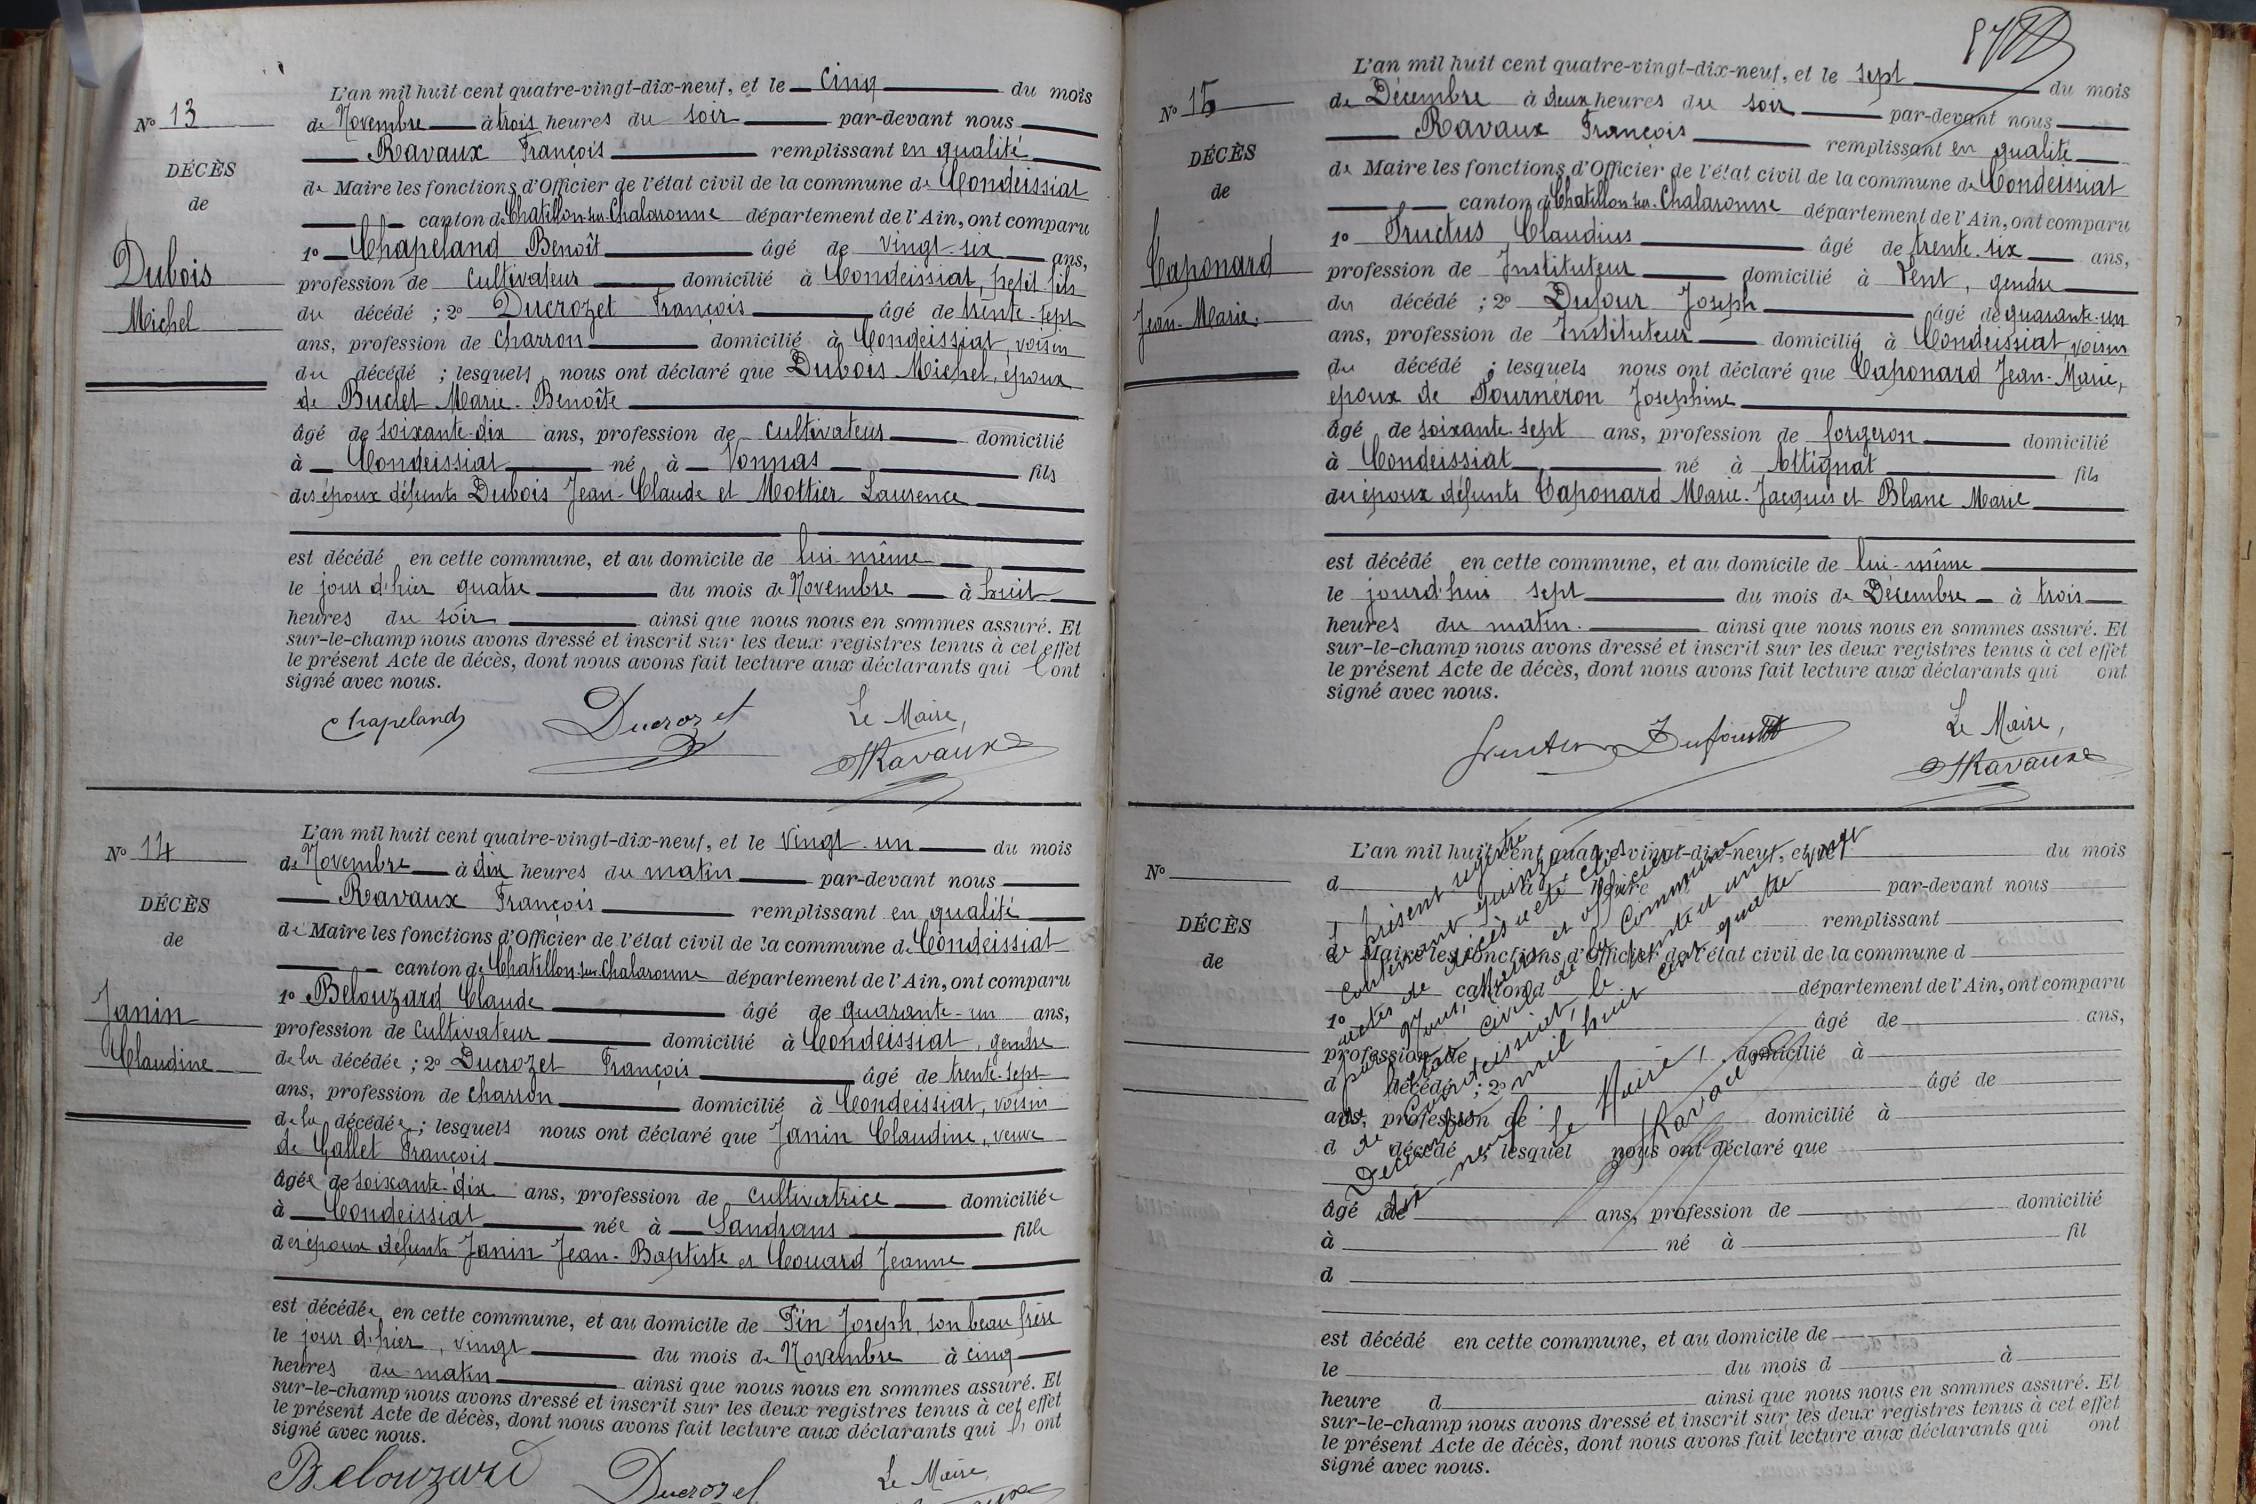 L'an mil huit cent quatre-vingt-dix-neuf, et le cinq du mois
No 13
de Novembre à trois heures du soir par-devant nous
Ravaux François remplissant en qualité
DÉCÈS
de Maire les fonctions d'Officier de l'état civil de la commune de Condeissiat
de
canton de Chatillon-sur-Chalaronne département de l'Ain, ont comparu
1o Chapeland Benoît âgé de vingt-six ans,
Dubois
profession de cultivateur domicilié à Condeissiat, petit fils
Michel
du décédé ; 2o Ducrozet François âgé de trente-sept
ans, profession de charron domicilié à Condeissiat, voisin
du décédé ; lesquels nous ont déclaré que Dubois Michel, époux
de Buclet Marie-Benoîte
âgé de soixante-dix ans, profession de cultivateur domicilié
à Condeissiat né à Vonnas fils
des époux défunts Dubois Jean-Claude et Mottier Laurence
est décédé en cette commune, et au domicile de lui-même
le jour d'hier quatre du mois de Novembre à huit
heures du soir ainsi que nous nous en sommes assuré. Et
sur-le-champ nous avons dressé et inscrit sur les deux registres tenus à cet effet
le présent Acte de décès, dont nous avons fait lecture aux déclarants qui ont
signé avec nous.
Chapeland Ducrozet Le Maire,
Ravaux
L'an mil huit cent quatre-vingt-dix-neuf, et le vingt-un du mois
No 14
de Novembre à dix heures du matin par-devant nous
Ravaux François remplissant en qualité
DÉCÈS
de Maire les fonctions d'Officier de l'état civil de la commune de Condeissiat
de
canton de Chatillon-sur-Chalaronne département de l'Ain, ont comparu
1o Belouzard Claude âgé de quarante-un ans,
Janin
profession de cultivateur domicilié à Condeissiat, gendre
Claudine
de la décédée ; 2o Ducrozet François âgé de trente-sept
ans, profession de charron domicilié à Condeissiat, voisin
de la décédée ; lesquels nous ont déclaré que Janin Claudine, veuve
de Gallet François
âgée de soixante-dix ans, profession de cultivatrice domiciliée
à Condeissiat née à Sandrans fille
des époux défunts Janin Jean-Baptiste et Couard Jeanne
est décédée en cette commune, et au domicile de Pin Joseph, son beau frère
le jour d'hier, vingt du mois de Novembre à cinq
heures du matin ainsi que nous nous en sommes assuré. Et
sur-le-champ nous avons dressé et inscrit sur les deux registres tenus à cet effet
le présent Acte de décès, dont nous avons fait lecture aux déclarants qui ont
signé avec nous.
Belouzard Ducrozet Le Maire,
L'an mil huit cent quatre-vingt-dix-neuf, et le sept du mois
No 15
de Décembre à deux heures du soir par-devant nous
Ravaux François remplissant en qualité
DÉCÈS
de Maire les fonctions d'Officier de l'état civil de la commune de Condeissiat
de
canton de Chatillon-sur-Chalaronne département de l'Ain, ont comparu
1o Fructus Claudius âgé de trente-six ans,
Caponard
profession de Instituteur domicilié à Lent, gendre
Jean-Marie.
du décédé ; 2o Dufour Joseph âgé de quarante-un
ans, profession de Instituteur domicilié à Condeissiat, voisin
du décédé ; lesquels nous ont déclaré que Caponard Jean-Marie,
époux de Fournéron Joséphine
âgé de soixante-sept ans, profession de forgeron domicilié
à Condeissiat né à Attignat fils
des époux défunts Caponard Marie-Jacques et Blanc Marie
est décédé en cette commune, et au domicile de lui-même
le jourd'hui sept du mois de Décembre à trois
heures du matin. ainsi que nous nous en sommes assuré. Et
sur-le-champ nous avons dressé et inscrit sur les deux registres tenus à cet effet
le présent Acte de décès, dont nous avons fait lecture aux déclarants qui ont
signé avec nous.
Fructus Dufour Le Maire,
Ravaux
L'an mil huit cent quatre-vingt-dix-neuf, et le du mois
No
d à heure par-devant nous
remplissant
DÉCÈS
d Maire les fonctions d'Officier de l'état civil de la commune d
de
canton d département de l'Ain, ont comparu
1o âgé de ans,
profession de domicilié à
d décédé ; 2o âgé de
ans, profession de domicilié à
d décédé lesquel nous ont déclaré que
âgé de ans, profession de domicilié
à né à fil
d
est décédé en cette commune, et au domicile de
le du mois d à
heure d ainsi que nous nous en sommes assuré. Et
sur-le-champ nous avons dressé et inscrit sur les deux registres tenus à cet effet
le présent Acte de décès, dont nous avons fait lecture aux déclarants qui ont
signé avec nous.
Le présent registre
contenant quinze
actes de décès a été clos
par Nous, Maire et officier
de l'état civil de la Commune
de Condeissiat, le trente et un
Décembre mil huit cent quatre-vingt
dix-neuf. Le Maire,
Ravaux